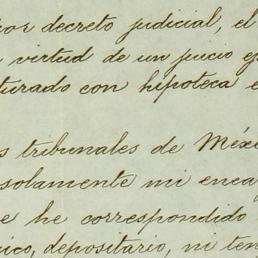 por decreto judicial, el
virtud de un juicio ej
turado con hipoteca e
s tribunales de Méxi
solamente mi enca
e he correspondido
ico, depositario, ni ten